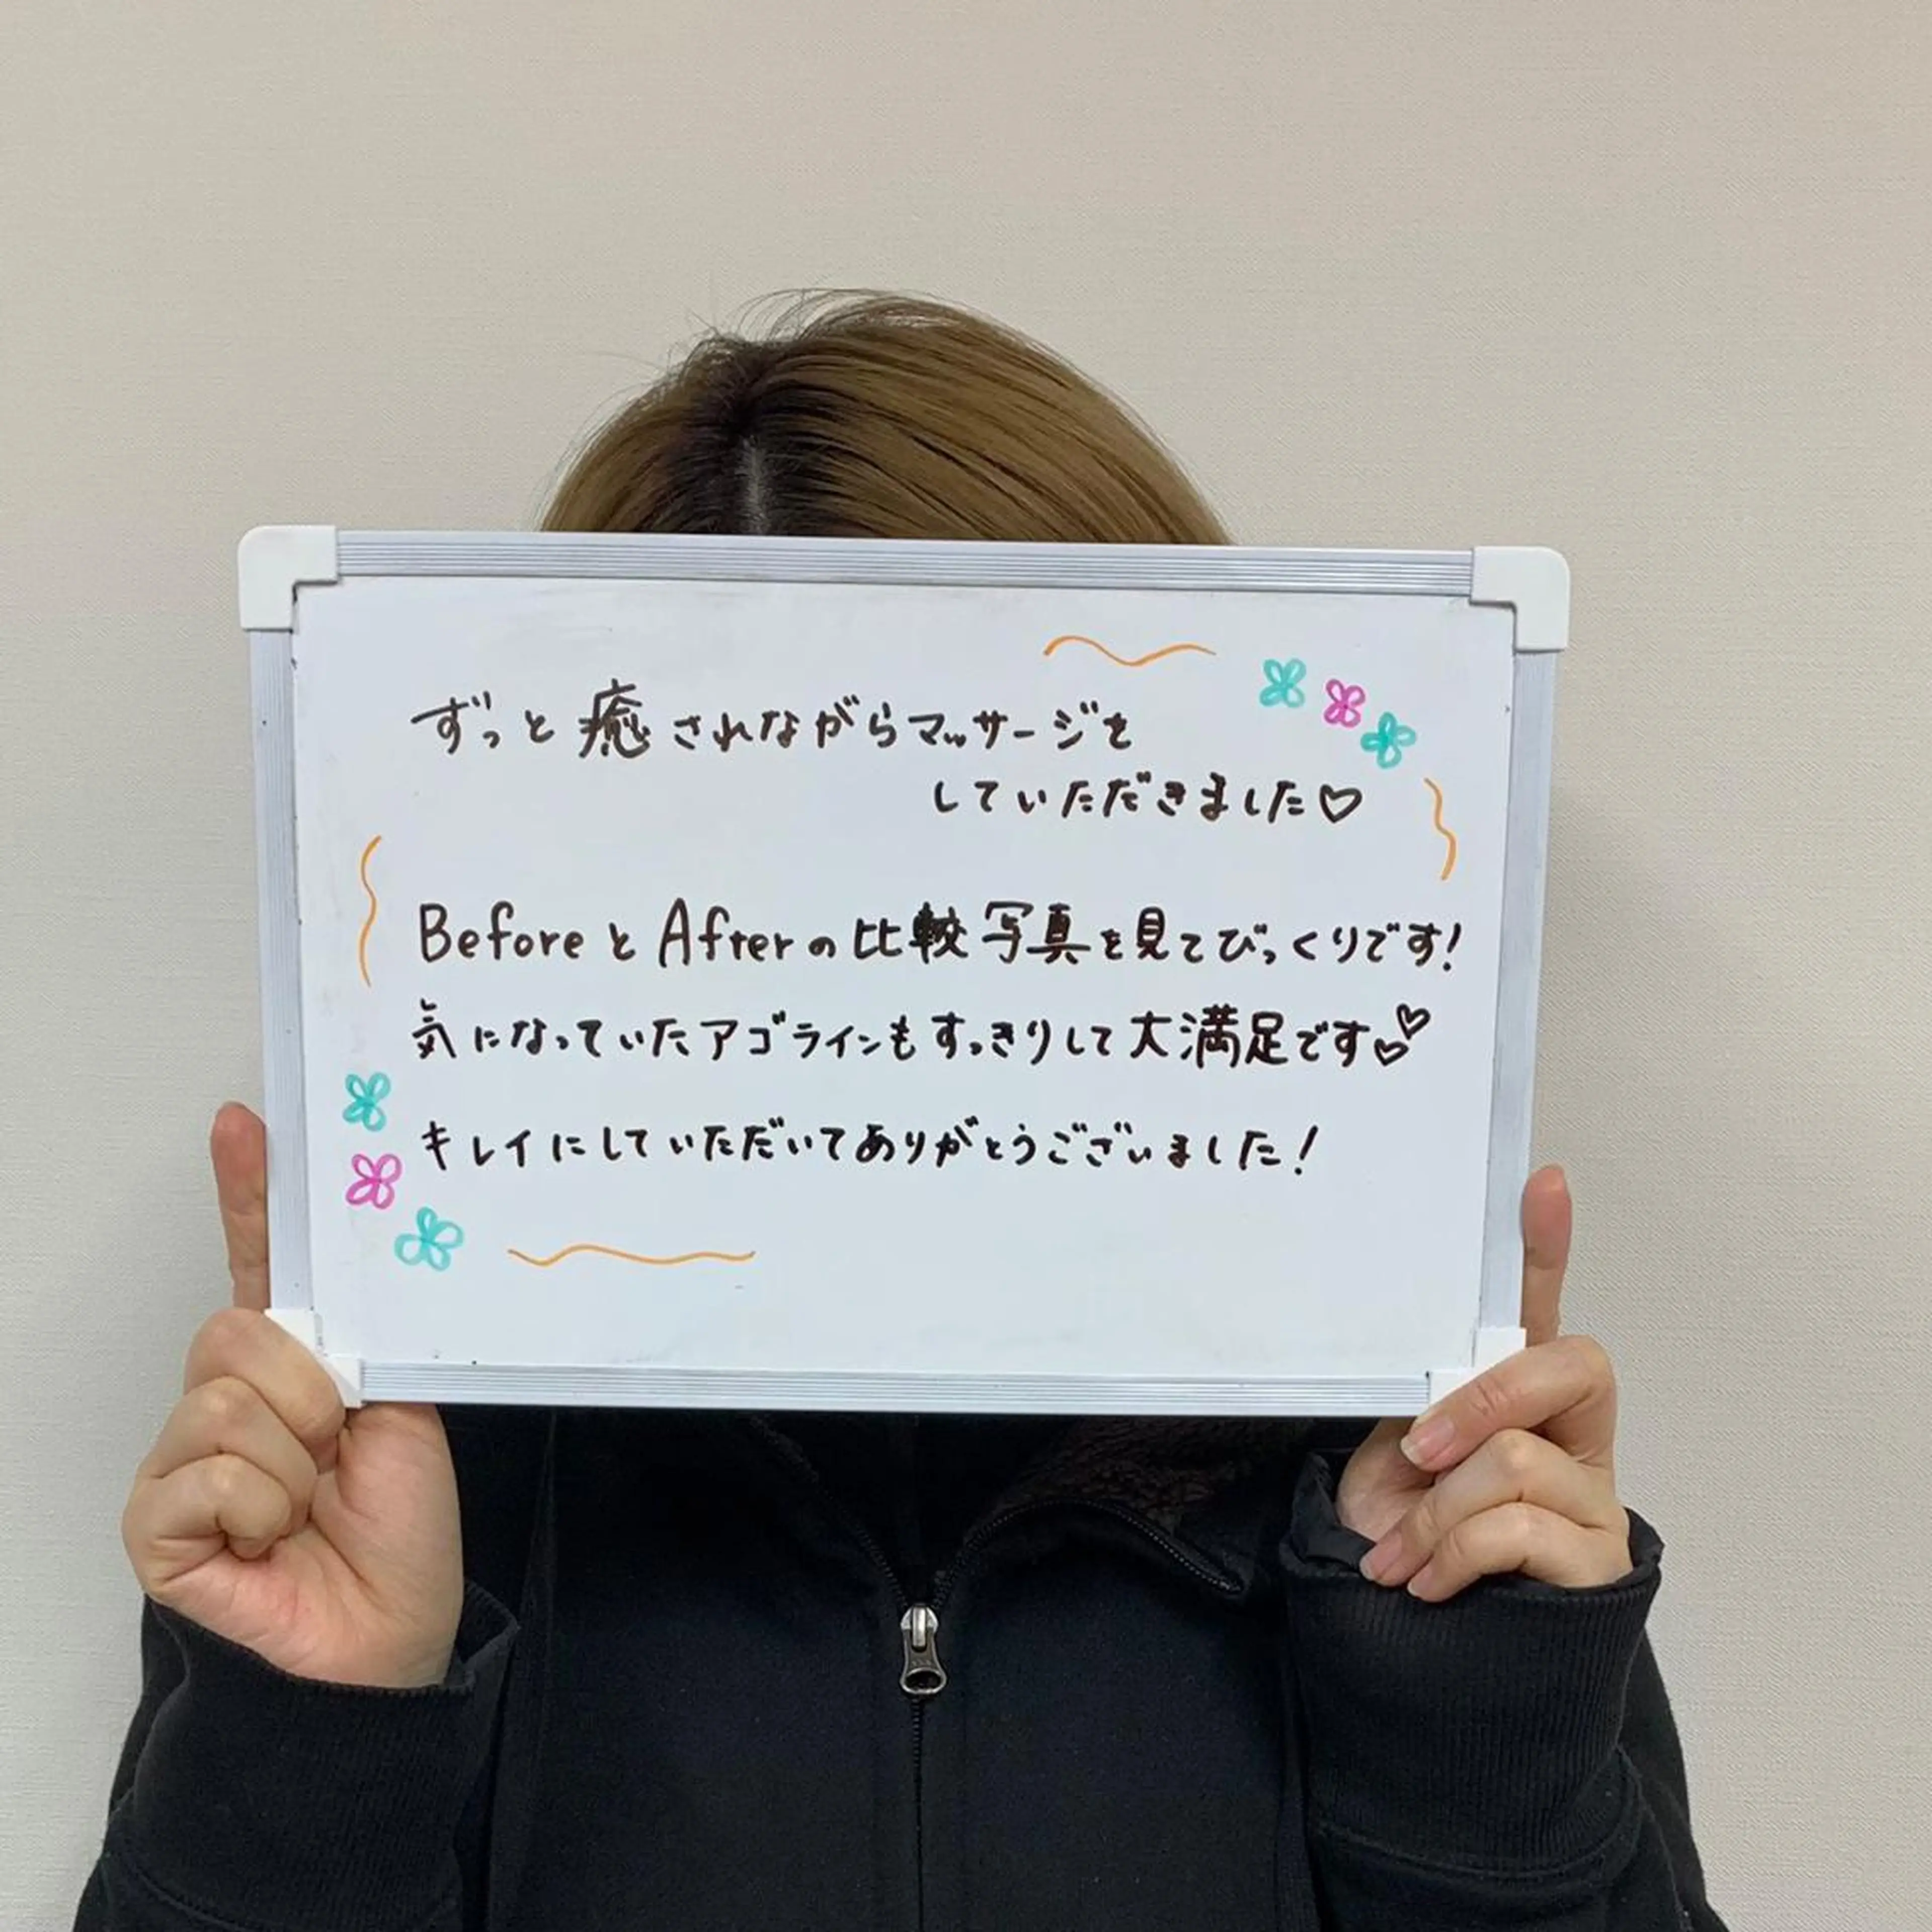 ずっと癒されながらマッサージを
していただきました♡
BeforeとAfterの比較写真を見てびっくりです!
気になっていたアゴラインもすっきりして大満足です♡♡
キレイにしていただいてありがとうございました!